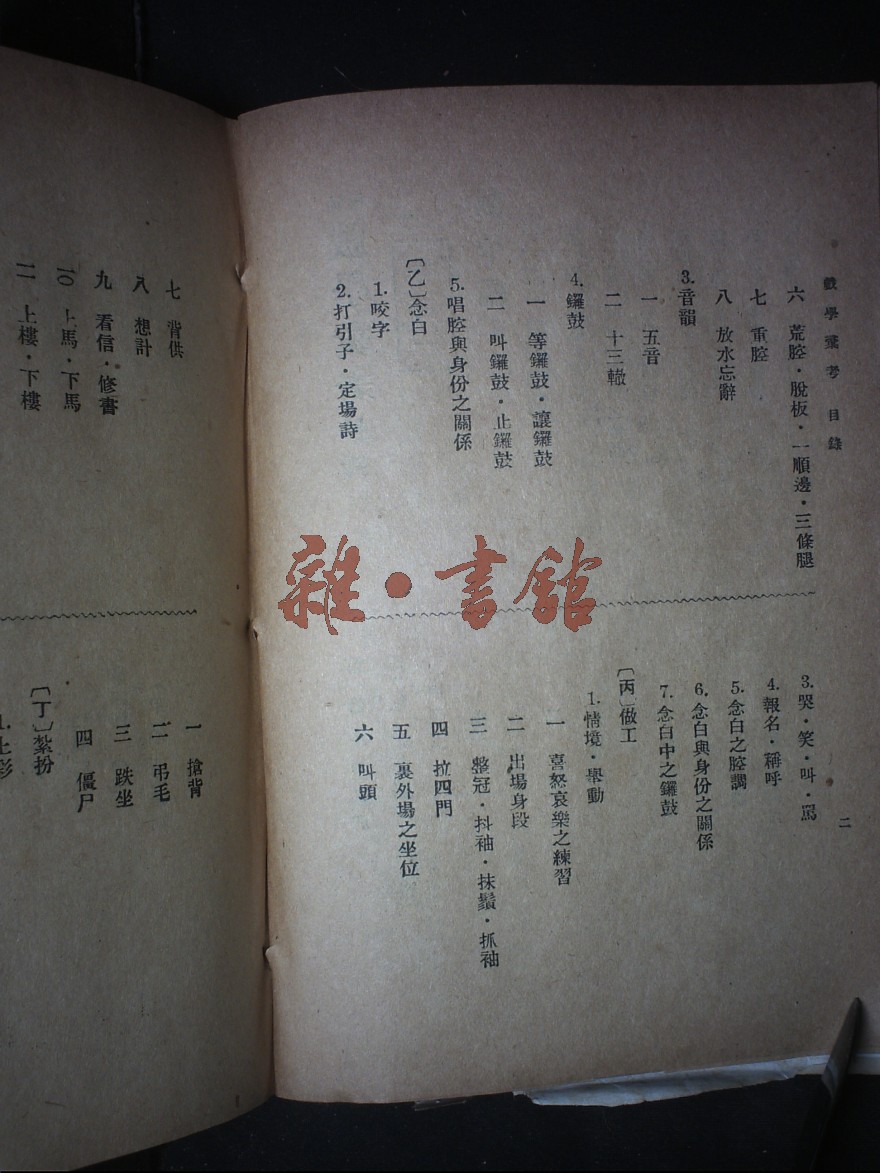 戲學彙考 目錄
六 荒腔·脫板·一順邊·三條腿
七 重腔
八 放水忘辭
3.音韻
一 五音
二 十三轍
4.鑼鼓
一 等鑼鼓·讓鑼鼓
二 叫鑼鼓·止鑼鼓
5.唱腔與身份之關係
〔乙〕念白
1.咬字
2.打引子·定場詩
二
3.哭·笑·叫·罵
4.報名·稱呼
5.念白之腔調
6.念白與身份之關係
7.念白中之鑼鼓
〔丙〕做工
1.情境·舉動
一 喜怒哀樂之練習
二 出場身段
三 整冠·抖袖·抹鬚·抓袖
四 拉四門
五 裏外場之坐位
六 叫頭
七 背供
八 想計
九 看信·修書
一〇 上馬·下馬
一一 上樓·下樓
一 搶背
二 弔毛
三 跌坐
四 僵尸
〔丁〕紮扮
雜·書館